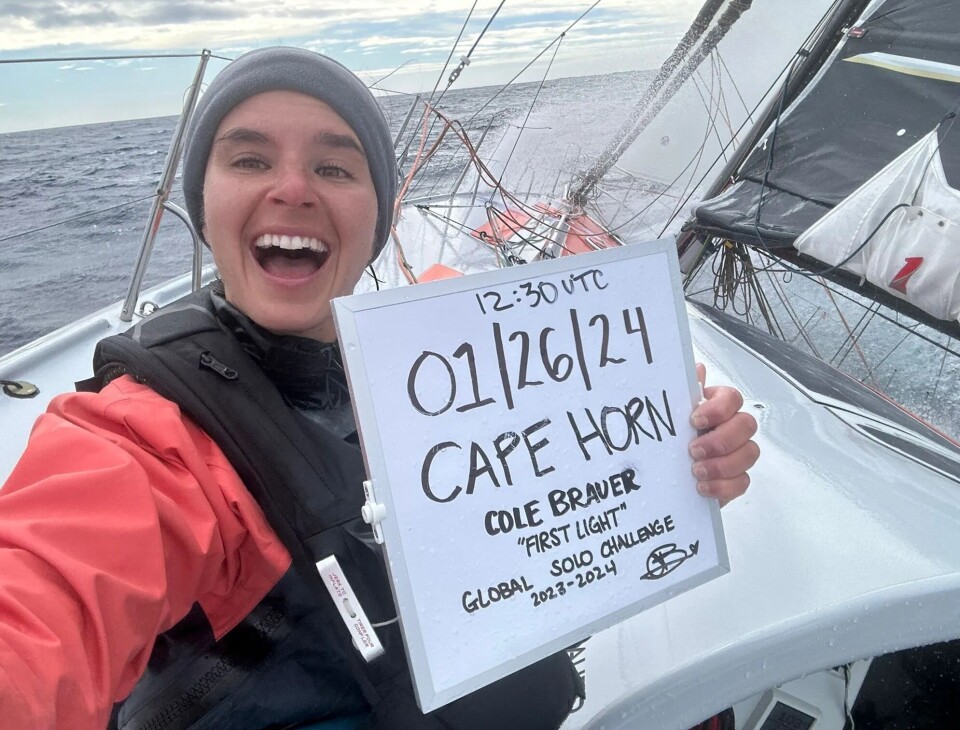 12:30 UTC
01/26/24
CAPE HORN
COLE BRAUER
"FIRST LIGHT"
GLOBAL SOLO CHALLENGE
2023-2024
JERK TO
INFLATE
1